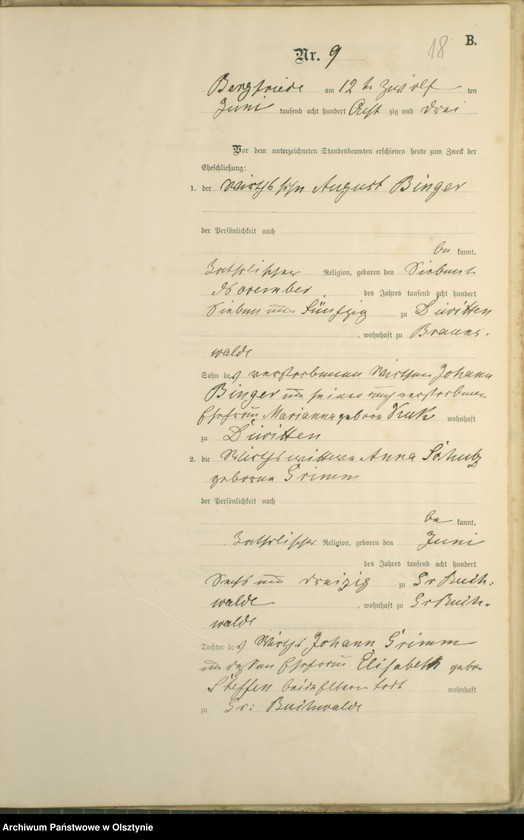 18 B.
Nr. 9
Bergfriede am 12 ten Zwölf ten
Juni tausend acht hundert Acht zig und drei
Vor dem unterzeichneten Standesbeamten erschienen heute zum Zweck der
Eheschließung:
1. der Wirthssohn August Binger
der Persönlichkeit nach
be kannt,
Katholischer Religion, geboren den Siebent.
November, des Jahres tausend acht hundert
Sieben und Fünfzig zu Diwitten
, wohnhaft zu Brauns-
walde
Sohn des verstorbenen Wirthen Johann
Binger und seiner auch verstorbenen
Ehefrau Marianna geborn wohnhaft
zu Diwitten
2. die Wirthswittwe Anna Schulz
geborne Grimm
der Persönlichkeit nach
be kannt,
Katholischer Religion, geboren den Juni
des Jahres tausend acht hundert
Sechs und dreizig zu Gr Buch-
walde, wohnhaft zu Gr Buch-
walde
Tochter des Wirths Johann Grimm
und dessen Ehefrau Elisabeth gebor
Steffen beide Eltern todt wohnhaft
zu Gr: Buchwalde
Archiwum Państwowe w Olsztynie